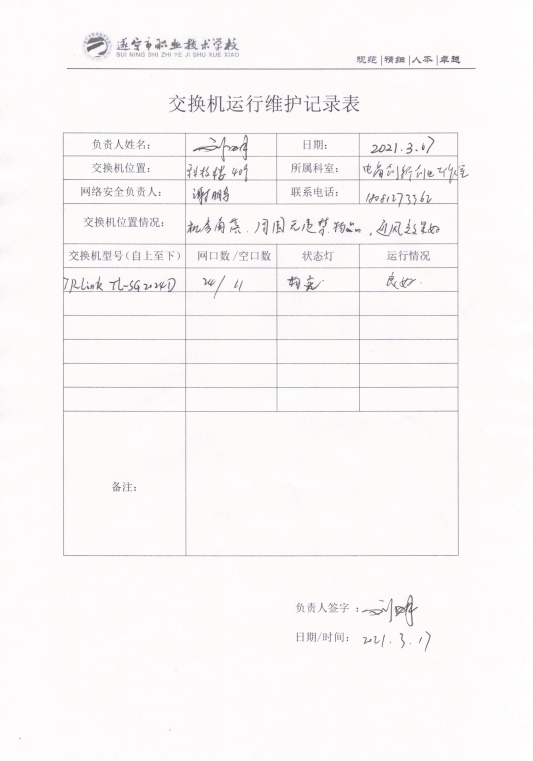 遂宁市职业技术学校
SUI NING SHI ZHI YE JI SHU XUE XIAO
规范|精细|人本|卓越
交换机运行维护记录表
负责人姓名： 日期： 2021.3.17
交换机位置： 科技楼409 所属科室：
网络安全负责人： 谢鹏 联系电话：
交换机位置情况： 周围无违禁物品，通风效果好
交换机型号（自上至下） 网口数/空口数 状态灯 运行情况
TPLink TL-SG2024D 24/11 均亮 良好
备注：
负责人签字：
日期/时间： 2021.3.17